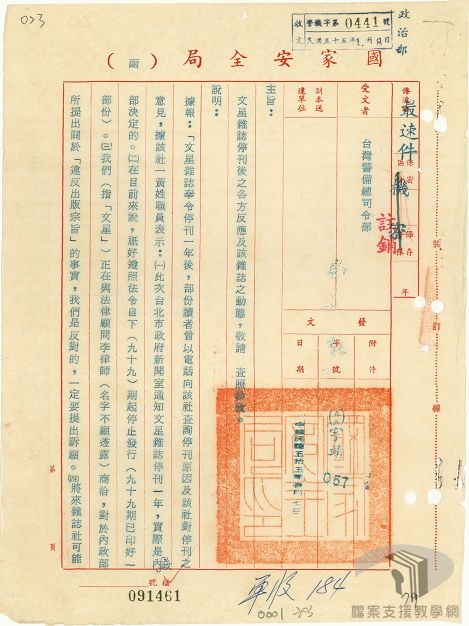 023
政治部
收文
警機字第0441號
民國五十五年1月8日
國家安全局(函)
傳遞
最速件
機密
註銷
保存
年
受文者
台灣警備總司令部
副本送達單位
發文
附件
字號
日期
(55)宇靖
057
中華民國五拾五年壹月七日
主旨:
文星雜誌停刊後之各方反應及該雜誌之動態,敬請 查照參考。
說明:
據報:「文星雜誌奉令停刊一年後,部份讀者曾以電話向該社查詢停刊原因及該社對停刊之
意見,據該社一黃姓職員表示:㈠此次台北市政府新聞室通知文星雜誌停刊一年,實際是內政
部決定的。㈡在目前來說,祇好遵照法令自下(九十九)期起停止發行(九十九期已印好一
部份)。㈢我們(指「文星」)正在與法律顧問李律師(名字不願透露)商洽,對於內政部
所提出關於「違反出版宗旨」的事實,我們是反對的,一定要提出訴願。㈣將來雜誌社可能
裝訂線
第 頁
檔號
091461
184
0001
29
檔案支援教學網